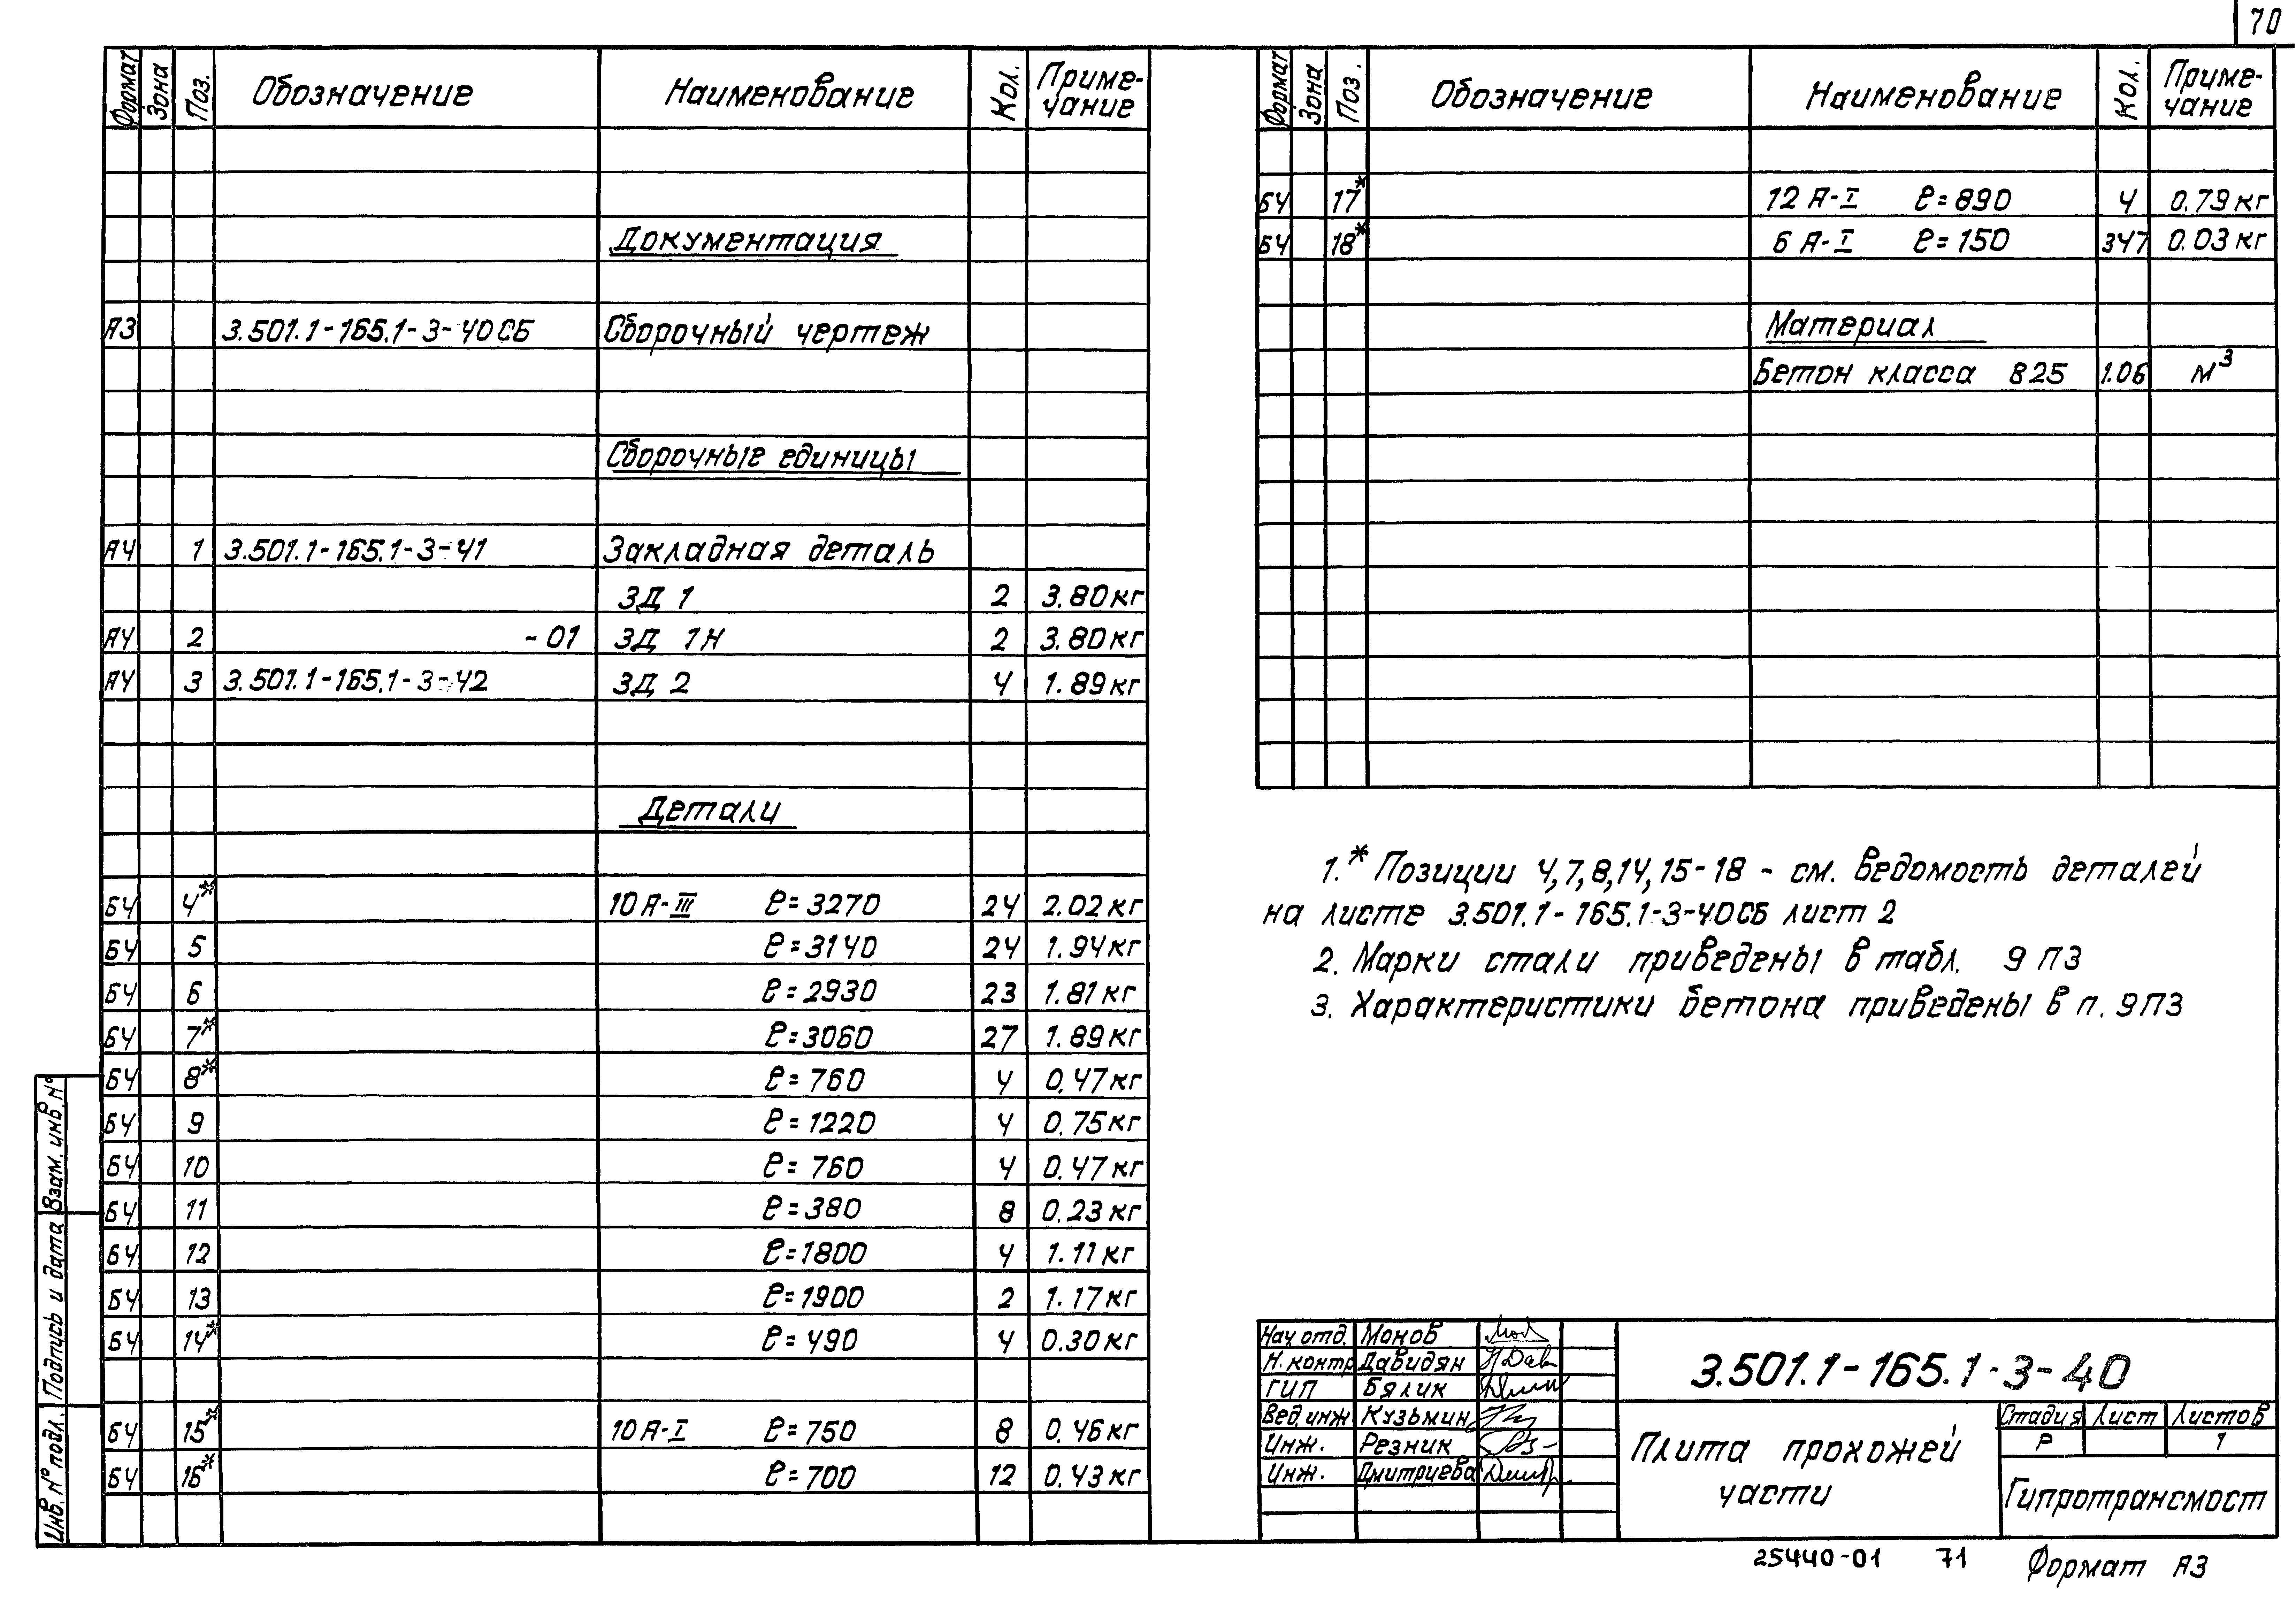 70
Формат Зона Поз. Обозначение Наименование Кол. Приме-чание
Документация
А3 3.501.1-165.1-3-40СБ Сборочный чертеж
Сборочные единицы
А4 1 3.501.1-165.1-3-41 Закладная деталь
ЗД 1 2 3.80 кг
А4 2 -01 ЗД 1Н 2 3.80 кг
А4 3 3.501.1-165.1-3-42 ЗД 2 4 1.89 кг
Детали
БЧ 4* 10 А-III ℓ=3270 24 2.02 кг
БЧ 5 ℓ=3140 24 1.94 кг
БЧ 6 ℓ=2930 23 1.81 кг
БЧ 7* ℓ=3060 27 1.89 кг
БЧ 8* ℓ=760 4 0.47 кг
БЧ 9 ℓ=1220 4 0.75 кг
БЧ 10 ℓ=760 4 0.47 кг
БЧ 11 ℓ=380 8 0.23 кг
БЧ 12 ℓ=1800 4 1.11 кг
БЧ 13 ℓ=1900 2 1.17 кг
БЧ 14* ℓ=490 4 0.30 кг
БЧ 15* 10 А-I ℓ=750 8 0.46 кг
БЧ 16* ℓ=700 12 0.43 кг
Взам. инв. №
Подпись и дата
Инв. № подл.
Формат Зона Поз. Обозначение Наименование Кол. Приме-чание
БЧ 17* 12 А-I ℓ=890 4 0.79 кг
БЧ 18* 6 А-I ℓ=150 347 0.03 кг
Материал
Бетон класса В25 1.06 м³
1.* Позиции 4,7,8,14,15-18 - см. ведомость деталей
на листе 3.501.1-165.1-3-40СБ лист 2
2. Марки стали приведены в табл. 9 ПЗ
3. Характеристики бетона приведены в п. 9ПЗ
Нач. отд. Монов
Н. контр Давидян
ГИП Бялик
Вед. инж Кузьмин
Инж. Резник
Инж. Дмитриева
3.501.1-165.1-3-40
Плита прохожей
части
Стадия Лист Листов
Р 1
Гипротрансмост
25440-01 71 Формат А3